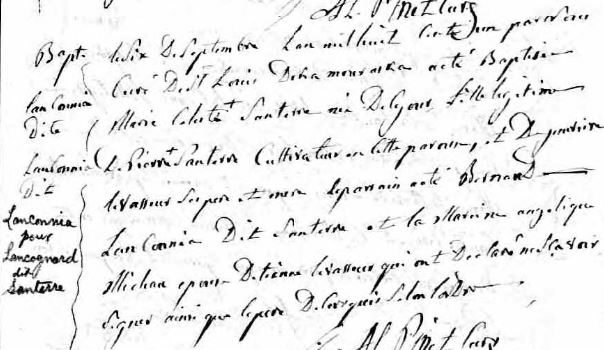 Al. Pinet Curé
Bapt.
Lanconnia
Dite
Lanconnia
Dit
Lanconnia
pour
Lancognard
dit
Santerre
Le Six De Septembre Lan mil huit Cent un par
Curé De St Louis De Kamouraska a été Baptisée
Marie Celeste Santerre née De ce jour fille legitime
De Pierre Santerre Cultivateur en cette paroisse, et De
levasseur Ses pere et mere le parrain a été Bernard
Lanconnia Dit Santerre et la Maraine angelique
Michau epouse D'etienne levasseur qui ont Declaré ne Sçavoir
Signer ainsi que le pere De ce requis Selon lordre
Al. Pinet Curé